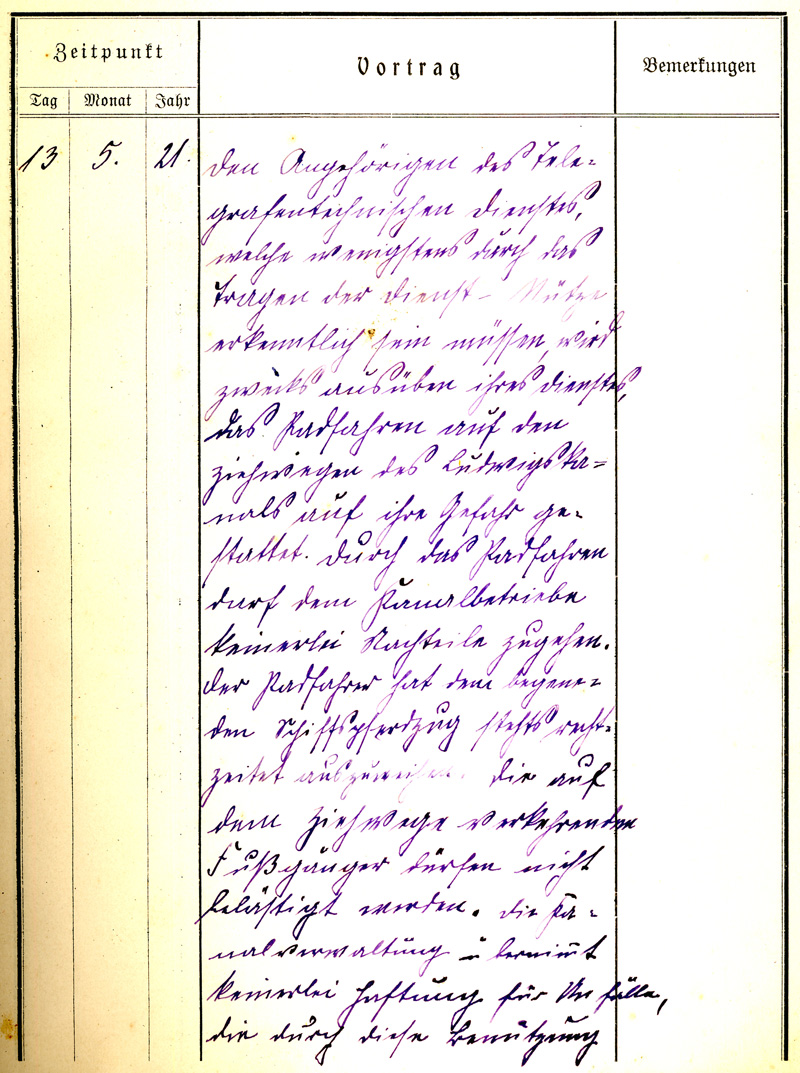 Zeitpunkt
Vortrag
Bemerkungen
Tag Monat Jahr
13 5. 21. Den Angehörigen des Tele-
grafentechnischen Dienstes,
welche wenigstens durch das
Tragen der Dienst- Mütze
erkenntlich sein müssen, wird
zwecks ausüben ihres Dienstes,
das Radfahren auf den
Ziehwegen des Ludwigska=
nals auf ihre Gefahr ge-
stattet. Durch das Radfahren
darf dem Kanalbetriebe
keinerlei Nachteile zugehen.
Der Radfahrer hat dem begene-
den Schiffspferdzug stehts recht-
zeitet auszuweichen. Die auf
dem Ziehwege verkehrenden
Fußgänger dürfen nicht
belästigt werden. Die Ka-
nalverwaltung übernimt
keinerlei Haftung für Unfälle,
die durch diese Benützung